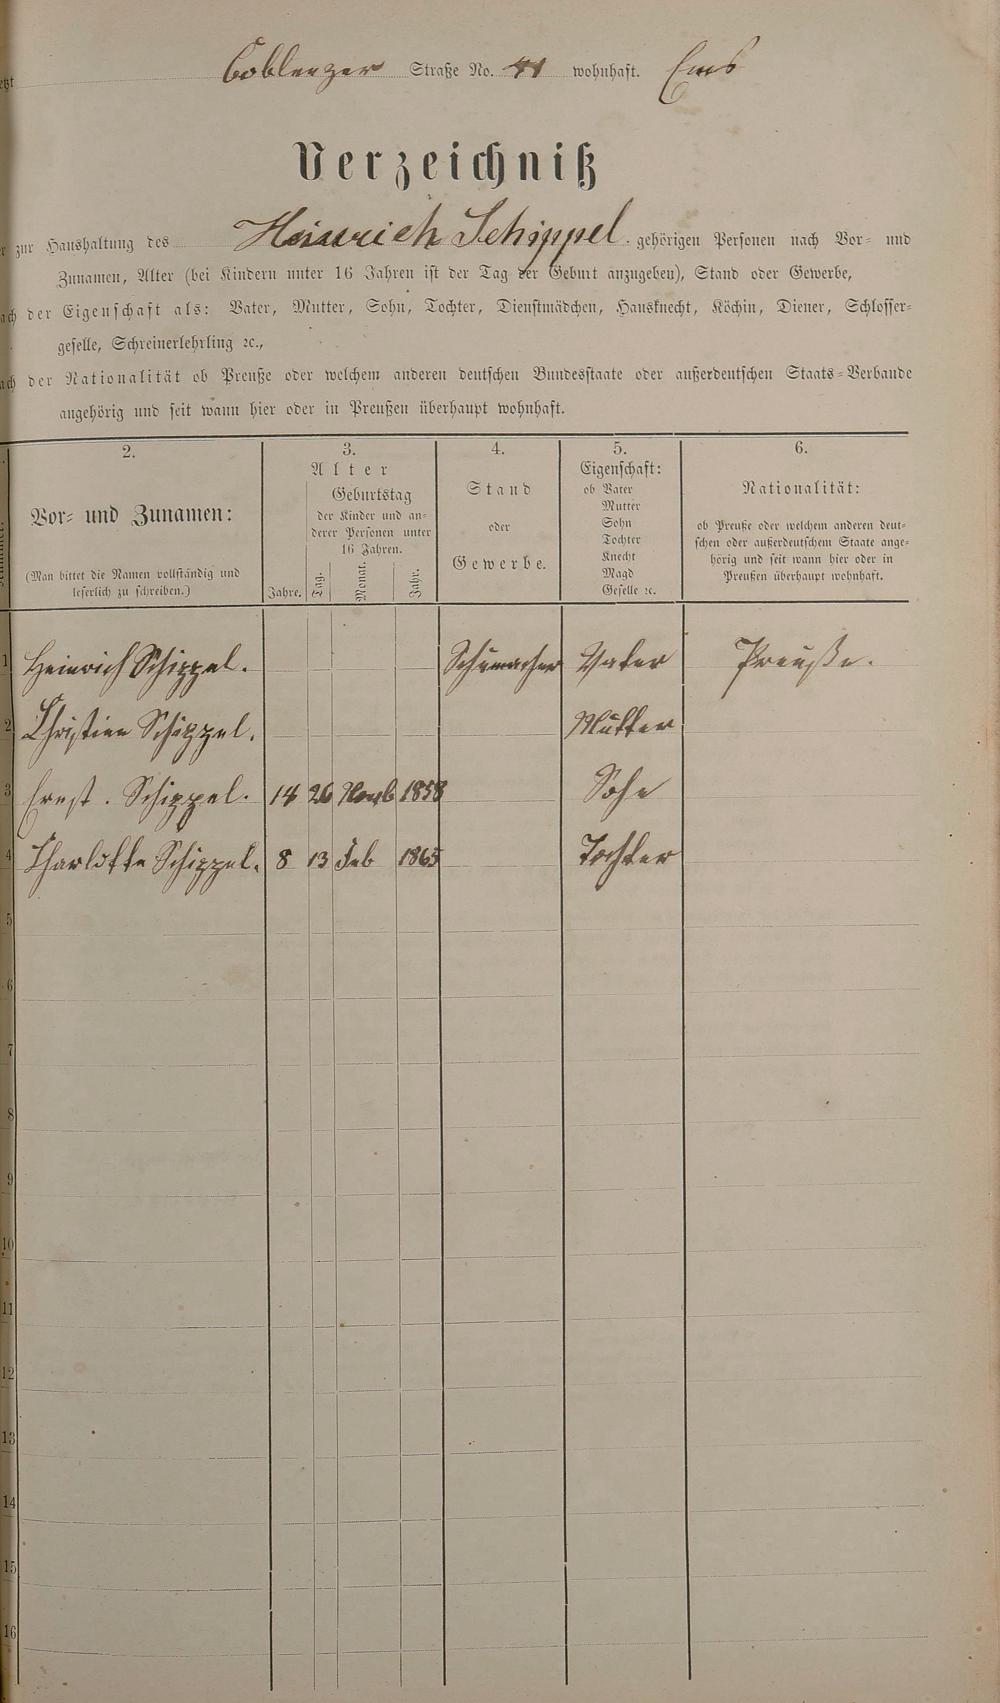 Coblenzer Straße No. 41 wohnhaft. Ems
Verzeichniß
zur Haushaltung des Heinrich Schippel. gehörigen Personen nach Vor- und
Zunamen, Alter (bei Kindern unter 16 Jahren ist der Tag der Geburt anzugeben), Stand oder Gewerbe,
der Eigenschaft als: Vater, Mutter, Sohn, Tochter, Dienstmädchen, Hausknecht, Köchin, Diener, Schlosser-
geselle, Schreinerlehrling ꝛc.,
der Nationalität ob Preuße oder welchem anderen deutschen Bundesstaate oder außerdeutschen Staats-Verbande
angehörig und seit wann hier oder in Preußen überhaupt wohnhaft.
2.
Vor- und Zunamen:
(Man bittet die Namen vollständig und
leserlich zu schreiben.)
3.
Alter
Jahre.
Geburtstag
der Kinder und an-
derer Personen unter
16 Jahren.
Tag.
Monat.
Jahr.
4.
Stand
oder
Gewerbe.
5.
Eigenschaft:
ob Vater
Mutter
Sohn
Tochter
Knecht
Magd
Geselle ꝛc.
6.
Nationalität:
ob Preuße oder welchem anderen deut-
schen oder außerdeutschem Staate ange-
hörig und seit wann hier oder in
Preußen überhaupt wohnhaft.
1 Heinrich Schippel. Schumacher Vater Preuße.
2 Christine Schippel. Mutter
3 Ernst. Schippel. 14 26 Novb 1858 Sohn
4 Charlotte Schippel. 8 13 Feb 1865 Tochter
5
6
7
8
9
10
11
12
13
14
15
16